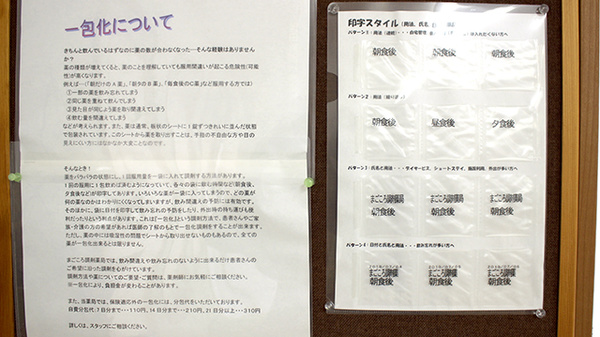 一包化について
きちんと飲んでいるはずなのに薬の数が合わなくなった…そんな経験はありませんか?
薬の種類が増えてくると、薬のことを理解していても服用間違いが起こる危険性(可能性)が高くなります。
例えば…「朝だけのA薬」、「朝夕のB薬」、「毎食後のC薬」など服用する方では)
①一部の薬を飲み忘れてしまう
②同じ薬を重ねて飲んでしまう
③見た目が同じよう薬を取り間違えてしまう
④飲む量を間違えてしまう
などが考えられます。また、薬は通常、板状のシートに1錠ずつきれいに並んだ状態
で包装されています。このシートから薬を取り出すことは、手指の不自由な方や目の
見えにくい方にはなかなか大変なことなのです。
そんなとき!
薬をバラバラの状態にし、1回服用量を一袋に入れて調剤する方法があります。
1回の服用に1包飲めば済むようになっていて、各々の袋に飲む時間など(朝食後、
夕食後など)が印字してあります。いろいろな薬が一袋に入ってしまうので、どの薬が
何の薬なのかはわかりにくくなってしまいますが、飲み間違えの予防には有効です。
そのほかに、袋に日付を印字して飲み忘れの予防をしたり、外出時の持ち運びも便
利だったりという利点があります。これは「一包化」という調剤方法で、患者さんやご家
族・介護の力の希望があれば医師の了解のもとで一包化調剤をすることが出来ます。
ただし、薬の中には吸湿性の問題でシートから取り出せないものもあるので、全ての
薬が一包化出来るとは限りません。
まごころ調剤薬局では、飲み間違えや飲み忘れのないように出来るだけ患者さんの
ご希望に沿った調剤を心がけています。
調剤方法や薬についてのご要望・ご質問は、薬剤師にお気軽にご相談ください。
※一包化により、負担金が変わることがあります。
また、当薬局では、保険適応外の一包化には、分包代をいただいております。
自費分包代:7日分まで…110円、14日分まで…210円、21日分以上…310円
詳しくは、スタッフにご相談ください。
印字スタイル(用法、氏名、日
パターン1:用法(連続)
朝食後 朝食後 朝食後
パターン2:用法(繰り
朝食後 昼食後 夕食後
パターン3:氏名と用法・・・デイサービス、ショートステイ、施設利用、外出が多い方へ
まごころ調剤薬局 まごころ調剤薬局 まごころ調剤薬局
朝食後 朝食後 朝食後
パターン4:日付と氏名と用法・・・飲み忘れが多い方へ
まごころ調剤薬局 まごころ調剤薬局 まごころ調剤薬局
朝食後 朝食後 朝食後